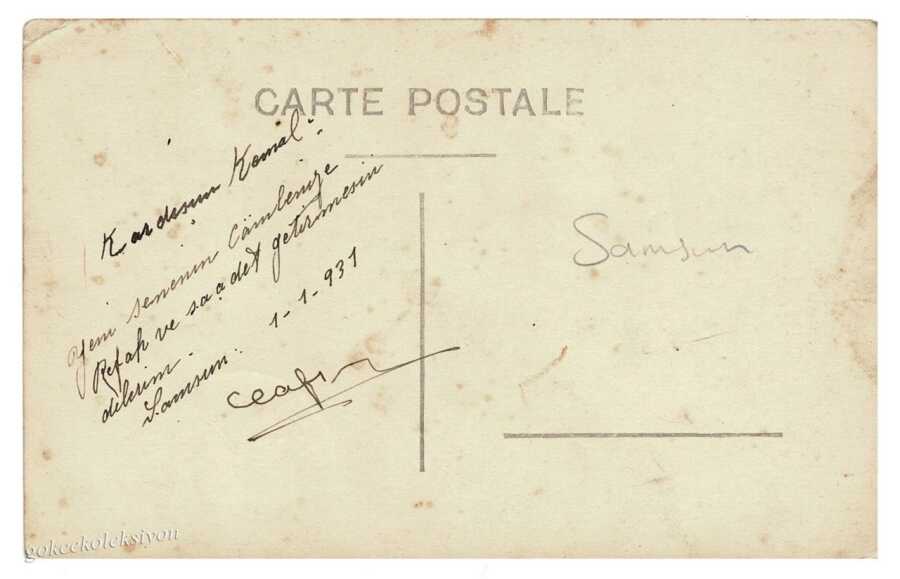 CARTE POSTALE
Kardışım Kemal:
Yeni senenin Cämlenize
Refah ve saadet getirmesin
dilerim.
Samsun: 1-1-931
Samsun
gokcekoleksiyon